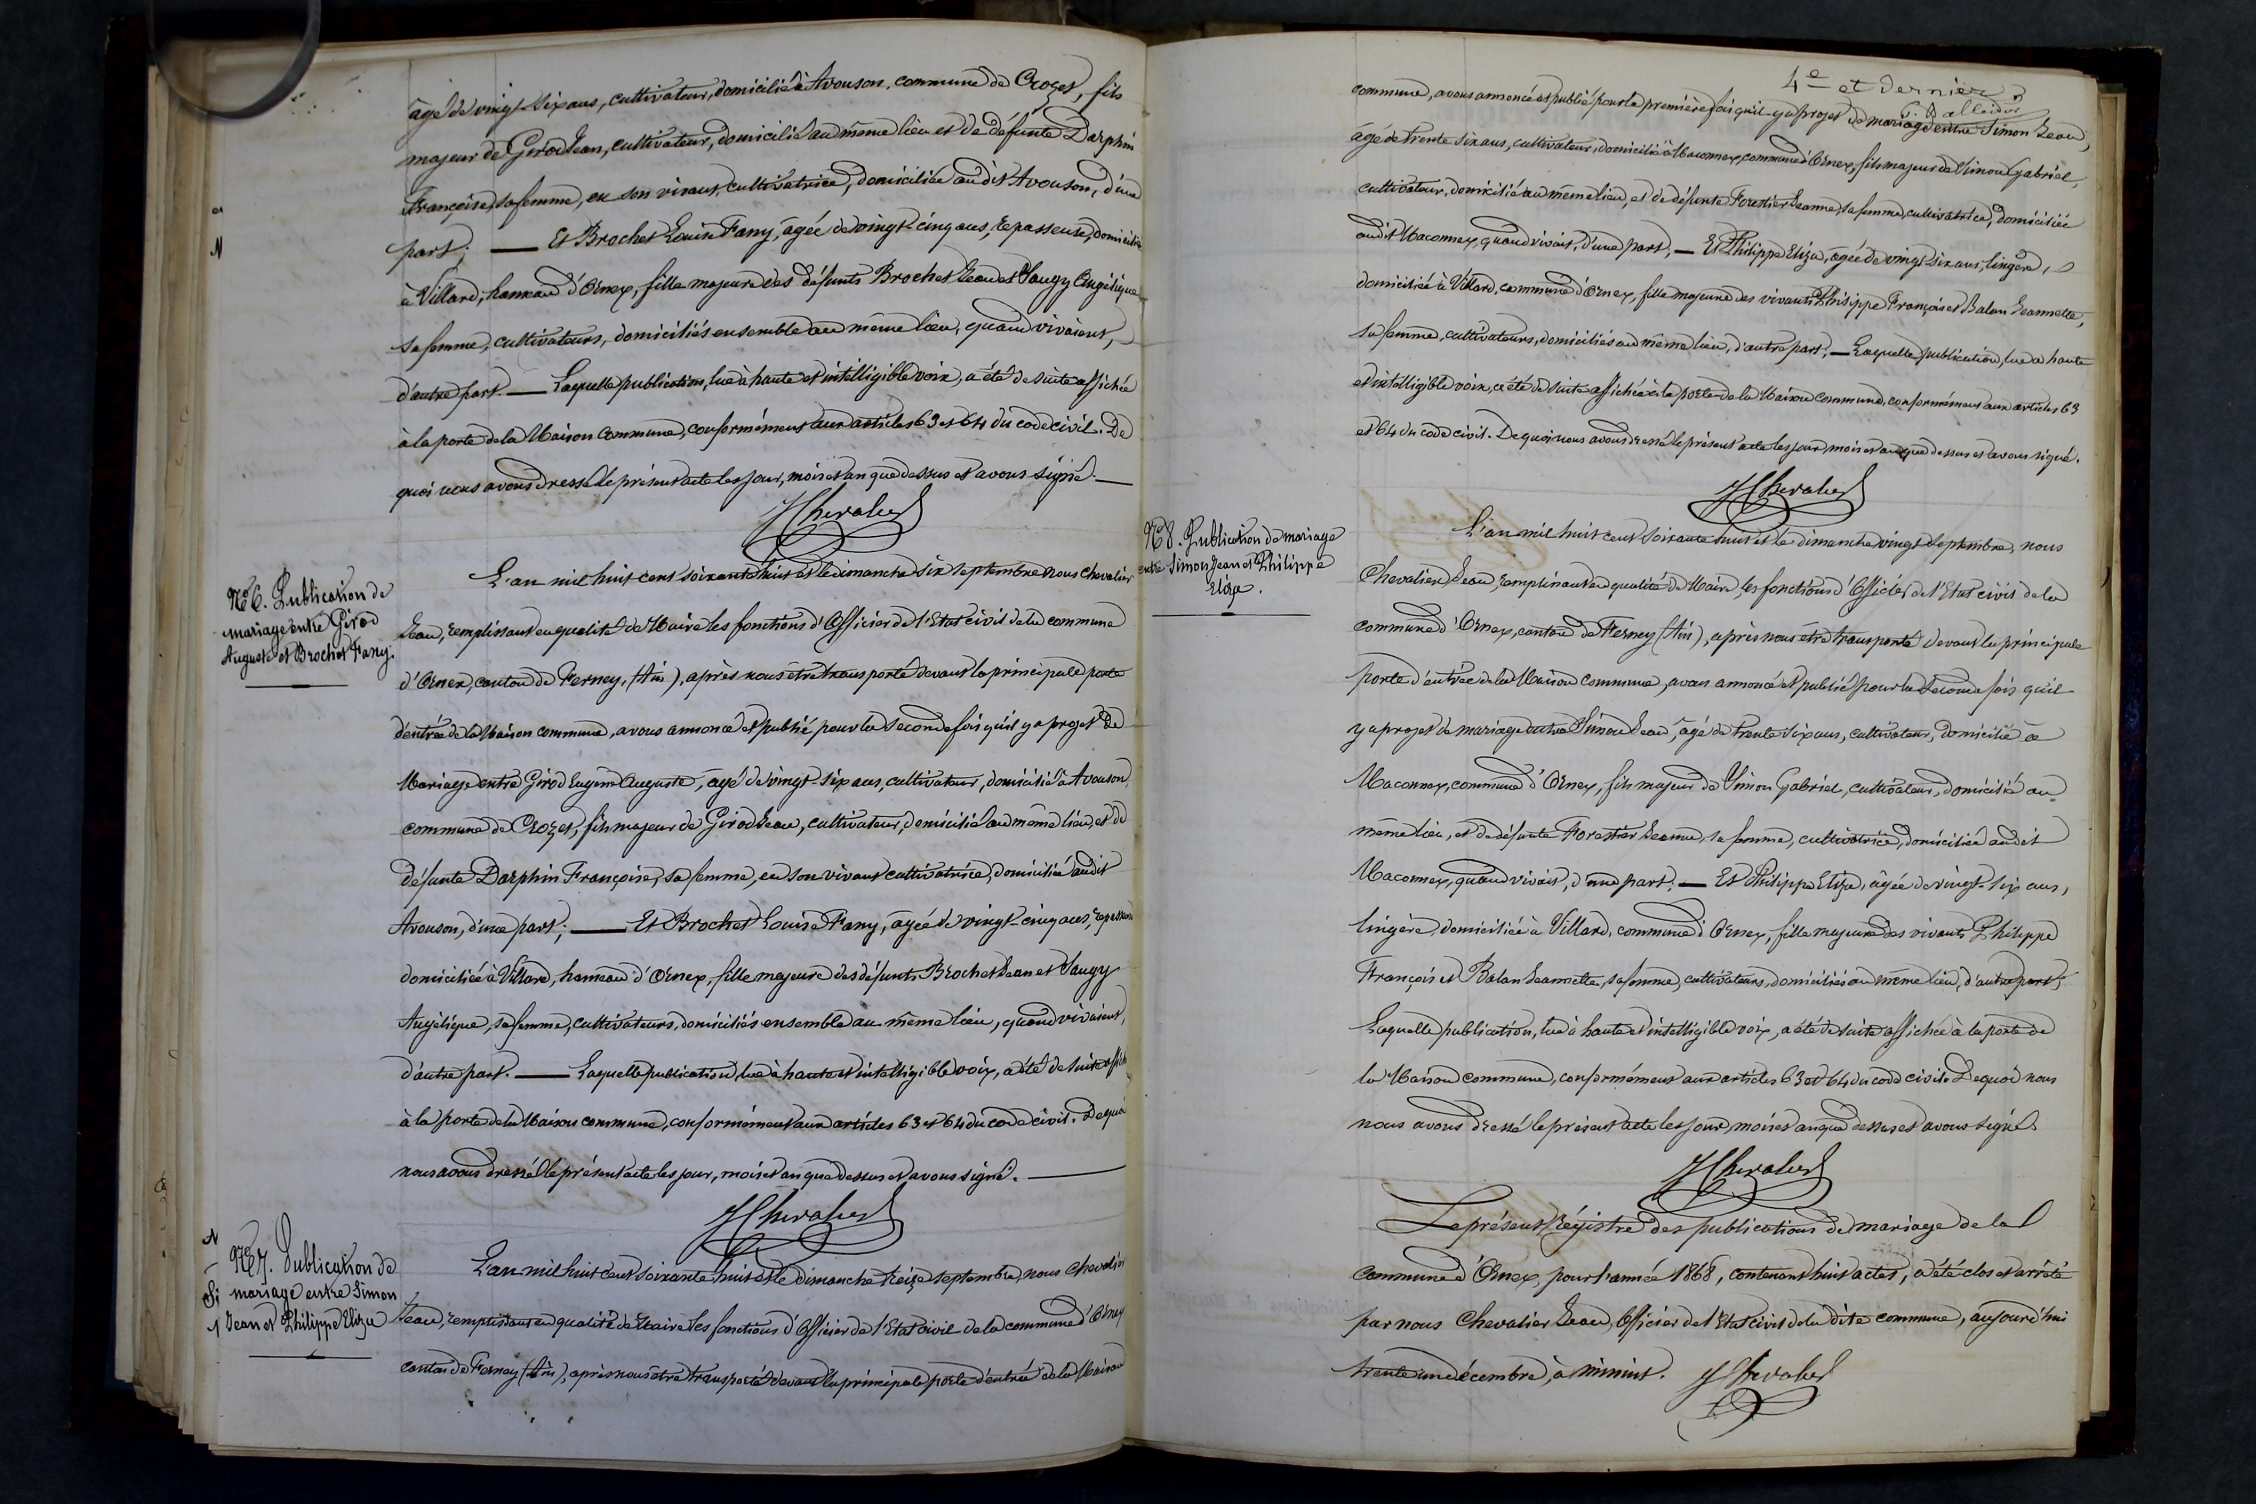 âgé de vingt-six ans, cultivateur, domicilié à Avouson, commune de Crozet, fils
majeur de Girod Jean, cultivateur, domicilié au même lieu et de défunte Darphin
Françoise, sa femme, en son vivant, cultivatrice, domiciliée audit Avouson, d'une
part; — Et Brochet Louise Fany, âgée de vingt-cinq ans, repasseuse, domiciliée
à Villard, hameau d'Ornex, fille majeure des défunts Brochet Jean et Saugy Angélique
sa femme, cultivateurs, domiciliés ensemble au même lieu, quand vivaient,
d'autre part. — Laquelle publication, lue à haute et intelligible voix, a été de suite affichée
à la porte de la Maison Commune, conformément aux articles 63 et 64 du code civil. De
quoi nous avons dressé le présent acte les jour, mois et an que dessus et avons signé. —
J Chevalier
No 6. Publication de
mariage entre Girod
Auguste et Brochet Fany.
L'an mil huit cent soixante huit et le dimanche six septembre nous Chevalier
Jean, remplissant en qualité de Maire les fonctions d'Officier de l'Etat civil de la commune
d'Ornex, canton de Ferney, (Ain), après nous être transporté devant la principale porte
d'entrée de la Maison commune, avons annoncé et publié pour la seconde fois qu'il y a projet de
Mariage entre Girod Eugène Auguste, âgé de vingt-six ans, cultivateur, domicilié à Avouson,
commune de Crozet, fils majeur de Girod Jean, cultivateur, domicilié au même lieu, et de
défunte Darphin Françoise, sa femme, en son vivant cultivatrice, domiciliée audit
Avouson, d'une part; — Et Brochet Louise Fany, âgée de vingt-cinq ans, repasseuse
domiciliée à Villard, hameau d'Ornex, fille majeure des défunts Brochet Jean et Saugy
Angélique, sa femme, cultivateurs, domiciliés ensemble au même lieu, quand vivaient,
d'autre part. — Laquelle publication, lue à haute et intelligible voix, a été de suite affichée
à la porte de la Maison commune, conformément aux articles 63 et 64 du code civil. De quoi
nous avons dressé le présent acte les jour, mois et an que dessus et avons signé. —
J Chevalier
No 7. Publication de
mariage entre Simon
Jean et Philippe Eliza
L'an mil huit cent soixante huit et le dimanche treize septembre, nous Chevalier
Jean, remplissant en qualité de Maire les fonctions d'Officier de l'Etat Civil de la commune d'Ornex
canton de Ferney (Ain), après nous être transporté devant la principale porte d'entrée de la Maison
4e et dernier
commune, avons annoncé et publié pour la première fois qu'il y a projet de mariage entre Simon Jean,
âgé de trente six ans, cultivateur, domicilié à Maconnex, commune d'Ornex, fils majeur de Simon Gabriel,
cultivateur, domicilié au même lieu, et de défunte Forestier Jeanne, sa femme, cultivatrice, domiciliée
audit Maconnex, quand vivait, d'une part, — Et Philippe Eliza, âgée de vingt-six ans, lingère,
domiciliée à Villard, commune d'Ornex, fille majeure des vivants Philippe François et Balan Jeannette,
sa femme, cultivateurs, domiciliés au même lieu, d'autre part; — Laquelle publication, lue à haute
et intelligible voix, a été de suite affichée à la porte de la Maison commune, conformément aux articles 63
et 64 du code civil. De quoi nous avons dressé le présent acte les jour, mois et an que dessus et avons signé.
J Chevalier
No 8. Publication de mariage
entre Simon Jean et Philippe
Eliza.
L'an mil huit cent soixante huit et le dimanche vingt septembre, nous
Chevalier Jean, remplissant en qualité de Maire, les fonctions d'Officier de l'Etat civil de la
commune d'Ornex, canton de Ferney (Ain), après nous être transporté devant la principale
porte d'entrée de la Maison commune, avons annoncé et publié pour la seconde fois qu'il
y a projet de mariage entre Simon Jean, âgé de trente six ans, cultivateur, domicilié à
Maconnex, commune d'Ornex, fils majeur de Simon Gabriel, cultivateur, domicilié au
même lieu, et de défunte Forestier Jeanne, sa femme, cultivatrice, domiciliée audit
Maconnex, quand vivait, d'une part; — Et Philippe Eliza, âgée de vingt-six ans,
lingère, domiciliée à Villard, commune d'Ornex, fille majeure des vivants Philippe
François et Balan Jeannette, sa femme, cultivateurs, domiciliés au même lieu, d'autre part;
Laquelle publication, lue à haute et intelligible voix, a été de suite affichée à la porte de
la Maison commune, conformément aux articles 63 et 64 du code civil. De quoi nous
nous avons dressé le présent acte les jour, mois et an que dessus et avons signé.
J Chevalier
Le présent Régistre des publications de mariage de la
commune d'Ornex, pour l'année 1868, contenant huit actes, a été clos et arrêté
par nous Chevalier Jean, Officier de l'Etat civil de la dite commune, aujourd'hui
trente un décembre, à minuit. J Chevalier